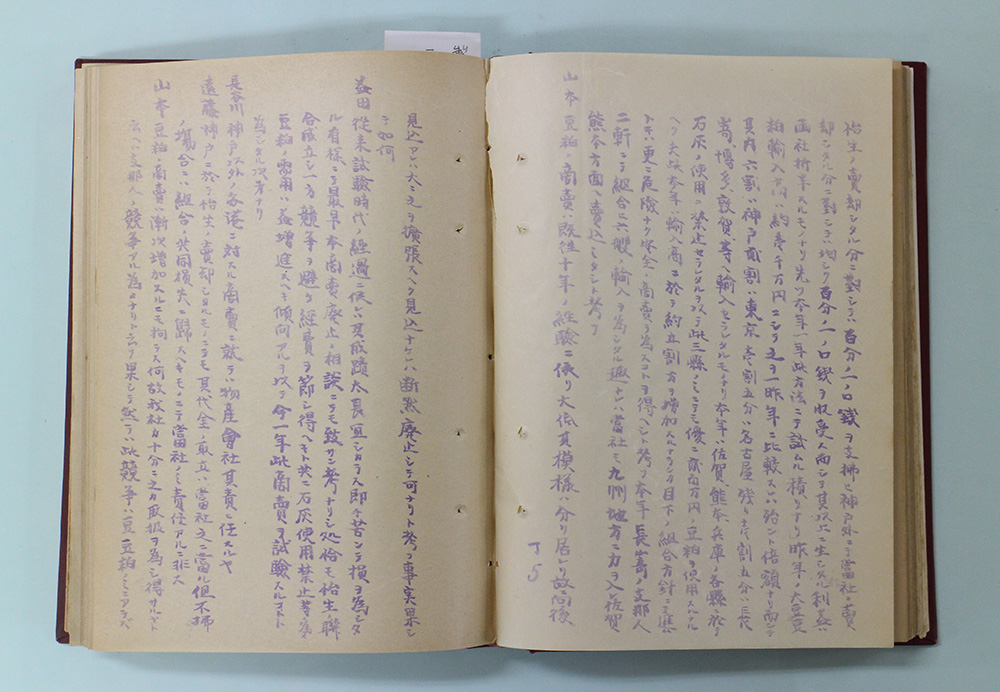 裕生ノ賣却シタル分ニ對シテハ百分ノ一ノ口錢ヲ支拂ヒ神戸外ニテ當社ノ賣
却シタル分ニ對シテハ均シク百分ノ一ノ口錢ヲ收受シ而シテ其以上ニ生シタル利益ハ
両社折半スルモノナリ先ツ本年一年此方法ニテ試ムル積リナリ昨年ノ大豆豆
粕輸入高ハ約壱千万円ニシテ之ヲ一昨年ニ比較スレハ殆ント倍額ナリ而シテ
其内六割ハ神戸貳割ハ東京壱割五分ハ名古屋残リ壱割五分ハ長
嵜、博多、敦賀等ヘ輸入セラレタルモノナリ本年ハ佐賀、熊本、兵庫ノ各縣ニ於テ
石灰ノ使用ヲ禁止セラレタルヲ以テ此三縣ノミニテモ優ニ貳百万円ノ豆粕ヲ使用スル
ヘク夫故本年ハ輸入高ニ於テ約五割方ヲ増加スルナラン目下ノ組合方針ニテ進
トキハ更ニ危險ナク安全ノ商賣ヲ為スコトヲ得ヘシト考フ本年長嵜ノ支那人
二軒ニテ組合ヒ六艘ノ輸入ヲ為シタル趣ナレハ當社モ九州地方ニ力ヲ入レ佐賀
熊本方面ヘ賣込ミタシト考フ
山本 豆粕ノ商賣ハ既往十年ノ經驗ニ依リ大低其模様ハ分リ居ル故向後
丁5
見込アレハ大ニ之ヲ擴張スヘク見込ナケレハ断然廢止シテ可ナリト考フ事実果シ
テ如何
益田 從来試驗時代ノ經過ニ依レハ其成蹟太タ良冝シカラス即チ苦シテ損ヲ為シタ
ル有様ニテ最早本商賣廢止ノ相談ニテモ致サント考ナリシ処恰モ裕生聯
合成立シ一方競争ヲ避ケ經費ヲ節シ得ヘキト共ニ石灰使用禁止等ノ為
豆粕ノ需用ハ益増進スヘキ傾向アルヲ以テ今一年此商賣ヲ試驗スルコトト
為シタル次第ナリ
長谷川 神戸以外ノ各港ニ対スル商賣ニ就テハ物産會社其責ニ任スルヤ
遠藤 神戸ニ於テ裕生ノ賣却シタルモノニテモ其代金ノ取立ハ當社之ニ當ル但不拂
ノ塲合ニハ組合ノ共同損失ニ歸スヘキモノニテ當社ノミ責任アルニ非ス
山本 豆粕ノ商賣ハ漸次増加スルニモ拘ラス何故我社カ十分ニ之カ取扱ヲ為シ得サルヤト
云ヘハ支那人ノ競争アル為メナリト云フ果シテ然ラハ此競争ハ豆豆粕ノミニアラス